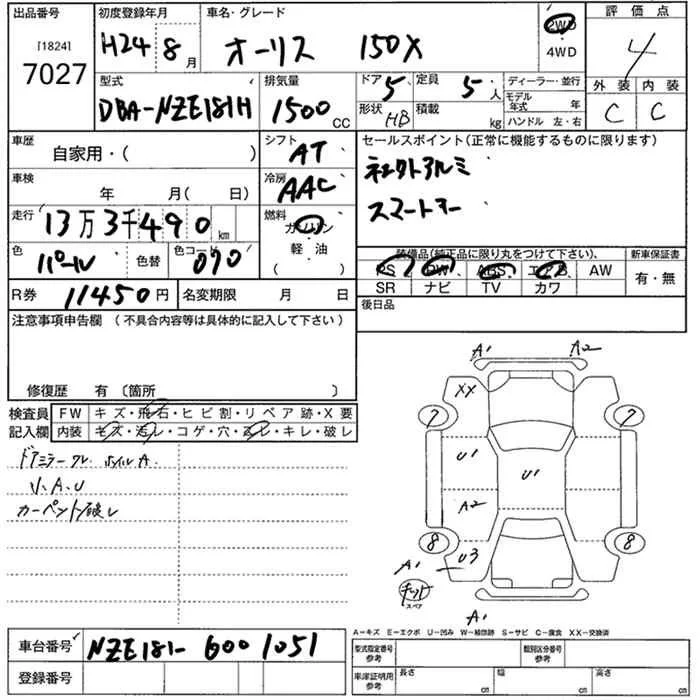 出品番号
[1824]
7027
初度登録年月
H24 8 月
車名・グレード
オーリス 150X
2WD
4WD
評価点
4
外装 内装
C C
型式
DBA-NZE181H
排気量
1500 CC
ドア 5
定員 5 人
形状 HB
積載 kg
ディーラー・並行
モデル年式 年
ハンドル 左・右
車歴
自家用・( )
シフト
AT
車検
年 月( 日)
冷房
AAC
走行
13万3千490 km
燃料
ガソリン
軽・油
( )
色
パール
色替
色コード
070
R券 11450円
名変期限 月 日
セールスポイント(正常に機能するものに限ります)
社外アルミ
スマートキー
装備品(純正品に限り丸をつけて下さい)、
PS PW ABS エアB AW
SR ナビ TV カワ
新車保証書
有・無
後日品
注意事項申告欄 (不具合内容等は具体的に記入して下さい)
修復歴 有〔箇所 〕
検査員記入欄
FW キズ・飛石・ヒビ割・リペア跡・X要
内装 キズ・汚レ・コゲ・穴・ヌレ・キレ・破レ
ドアミラーワレ ホイルA.
小、A、U
カーペント破レ
A1 A2
XX
7 7
U1 U1
A2
8 U3 8
A1
キット
スペア
A1
A-キズ E-エクボ U-凹み W-補修跡 S-サビ C-腐食 XX-交換済
車台番号 NZE181-6001051
登録番号
型式指定番号
参考
類別区分番号
参考
車庫証明用
参考
長さ cm
幅 cm
高さ cm